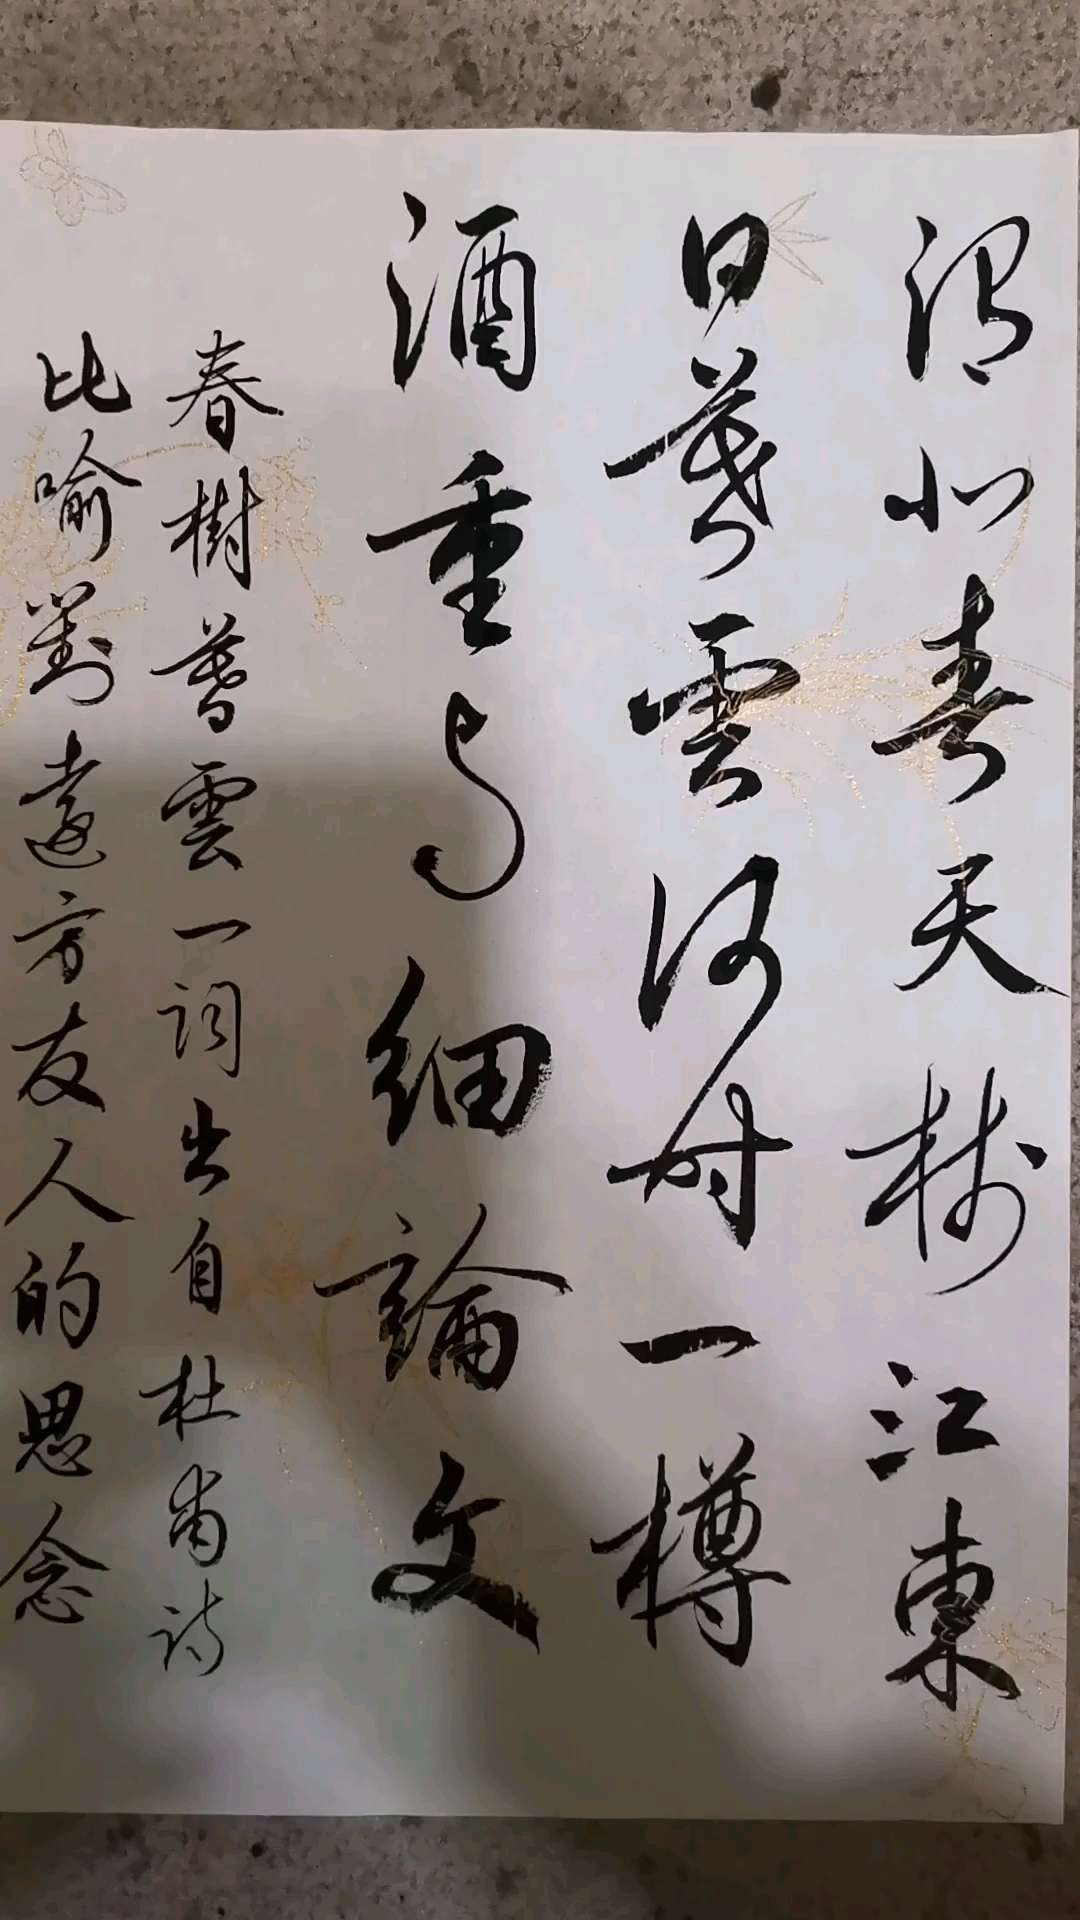 渭北春天樹江東
日暮雲何时一樽
酒重与細論文
春樹暮雲一詞出自杜甫詩
比喻對遠方友人的思念